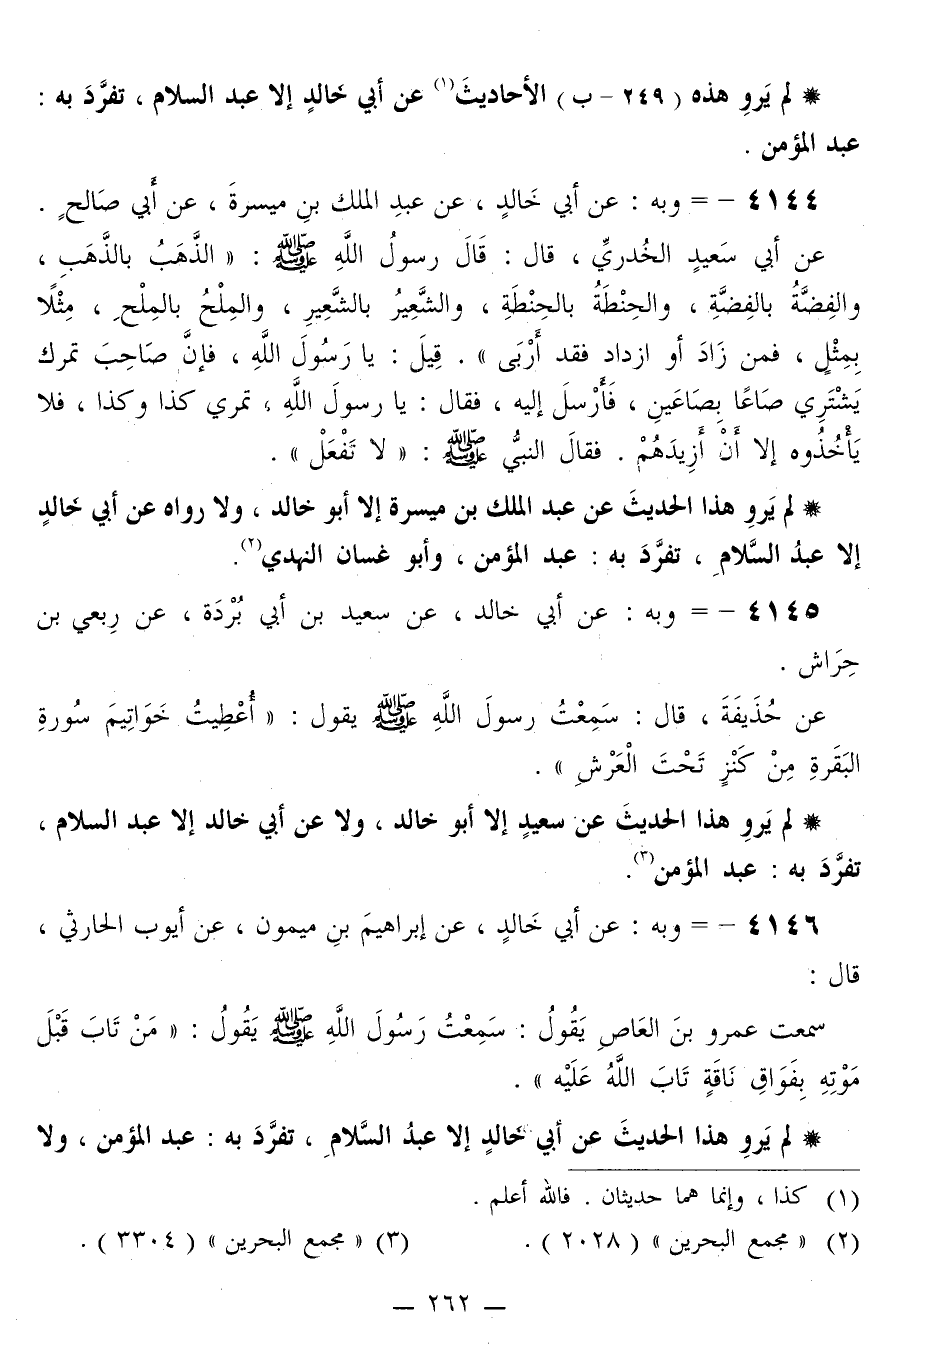 * لم يَروِ هذه ( ٢٤٩ - ب ) الأحاديثَ(١) عن أبي خَالدٍ إلا عبد السلام ، تفرَّدَ به :
عبد المؤمن .
٤١٤٤ - = وبه : عن أبي خَالدٍ ، عن عبدِ الملك بنِ ميسرةَ ، عن أَبي صَالحٍ .
عن أبي سَعيدٍ الخُدريِّ ، قال : قَالَ رسولُ اللَّهِ ﷺ : « الذَّهَبُ بالذَّهَبِ ،
والفِضَّةُ بالفِضَّةِ ، والحِنْطَةُ بالحِنْطَةِ ، والشَّعِيرُ بالشَّعِيرِ ، والمِلْحُ بالمِلْحِ ، مِثْلًا
بِمِثْلٍ ، فمن زَادَ أو ازداد فقد أَرْبَى » . قِيلَ : يا رَسُولَ اللَّهِ ، فإنَّ صَاحِبَ تمرك
يَشْتَرِي صَاعًا بِصَاعَينِ ، فَأَرْسلَ إليه ، فقال : يا رسولَ اللَّهِ ، تمري كذا وكذا ، فلا
يَأْخُذُوه إلا أَنْ أَزِيدَهُمْ . فقالَ النبيُّ ﷺ : « لا تَفْعَلْ » .
* لم يَروِ هذا الحديثَ عن عبد الملك بن ميسرة إلا أبو خالد ، ولا رواه عن أبي خَالدٍ
إلا عبدُ السَّلامِ ، تفرَّدَ به : عبد المؤمن ، وأبو غسان النهدي(٢).
٤١٤٥ - = وبه : عن أبي خالد ، عن سعيد بن أبي بُرْدَة ، عن رِبعي بن
حِرَاش .
عن حُذَيفَةَ ، قال : سَمِعْتُ رسولَ اللَّهِ ﷺ يقول : « أُعْطِيتُ خَوَاتِيمَ سُورةِ
البَقَرةِ مِنْ كَنْزٍ تَحْتَ الْعَرْشِ » .
* لم يَروِ هذا الحديثَ عن سعيدٍ إلا أبو خالد ، ولا عن أبي خالد إلا عبد السلام ،
تفرَّدَ به : عبد المؤمن(٣).
٤١٤٦ - = وبه : عن أبي خَالدٍ ، عن إبراهيمَ بنِ ميمون ، عن أيوب الحارثي ،
قال :
سمعت عمرو بنَ العَاصِ يَقُولُ : سَمِعْتُ رَسُولَ اللَّهِ ﷺ يَقُولُ : « مَنْ تَابَ قَبْلَ
مَوْتِهِ بِفَوَاقِ نَاقَةٍ تَابَ اللَّهُ عَلَيْه » .
* لم يَروِ هذا الحديثَ عن أبي خَالدٍ إلا عبدُ السَّلامِ ، تفرَّدَ به : عبد المؤمن ، ولا
(١) كذا ، وإنما هما حديثان . فالله أعلم .
(٢) « مجمع البحرين » ( ٢٠٢٨ ) . (٣) « مجمع البحرين » ( ٣٣٠٤ ) .
— ٢٦٢ —